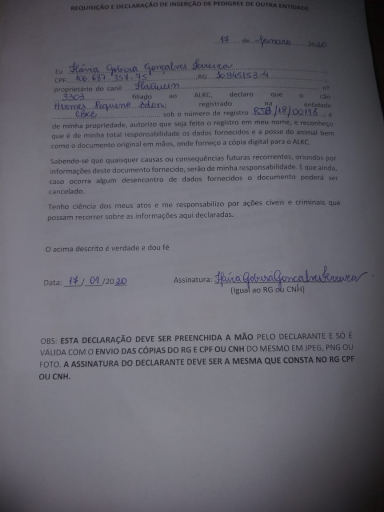 REQUISIÇÃO E DECLARAÇÃO DE INSERÇÃO DE PEDIGREE DE OUTRA ENTIDADE
17 de Janeiro 2020
Eu Flávia Gobira Gonçalves Ferreira
CPF RG
proprietário do canil nº
3302 filiado ao ALKC, declaro que o cão
Hermes Pequeno registrado na entidade
sob o número de registro RSB/18/00198, e
de minha propriedade, autorizo que seja feito o registro em meu nome, e reconheço
que é de minha total responsabilidade os dados fornecidos e a posse do animal bem
como o documento original em mãos, onde forneço a cópia digital para o ALKC.
Sabendo-se que quaisquer causas ou consequências futuras recorrentes, oriundos por
informações deste documento fornecido, serão de minha responsabilidade. E que ainda,
caso ocorra algum desencontro de dados fornecidos o documento poderá ser
cancelado.
Tenho ciência dos meus atos e me responsabilizo por ações cíveis e criminais que
possam recorrer sobre as informações aqui declaradas.
O acima descrito é verdade e dou fé
Data: 17/ 01 /2020 Assinatura: Flávia Gobira Gonçalves Ferreira
(Igual ao RG ou CNH)
OBS: ESTA DECLARAÇÃO DEVE SER PREENCHIDA A MÃO PELO DECLARANTE E SÓ É
VALIDA COM O ENVIO DAS CÓPIAS DO RG E CPF OU CNH DO MESMO EM JPEG, PNG OU
FOTO. A ASSINATURA DO DECLARANTE DEVE SER A MESMA QUE CONSTA NO RG CPF
OU CNH.